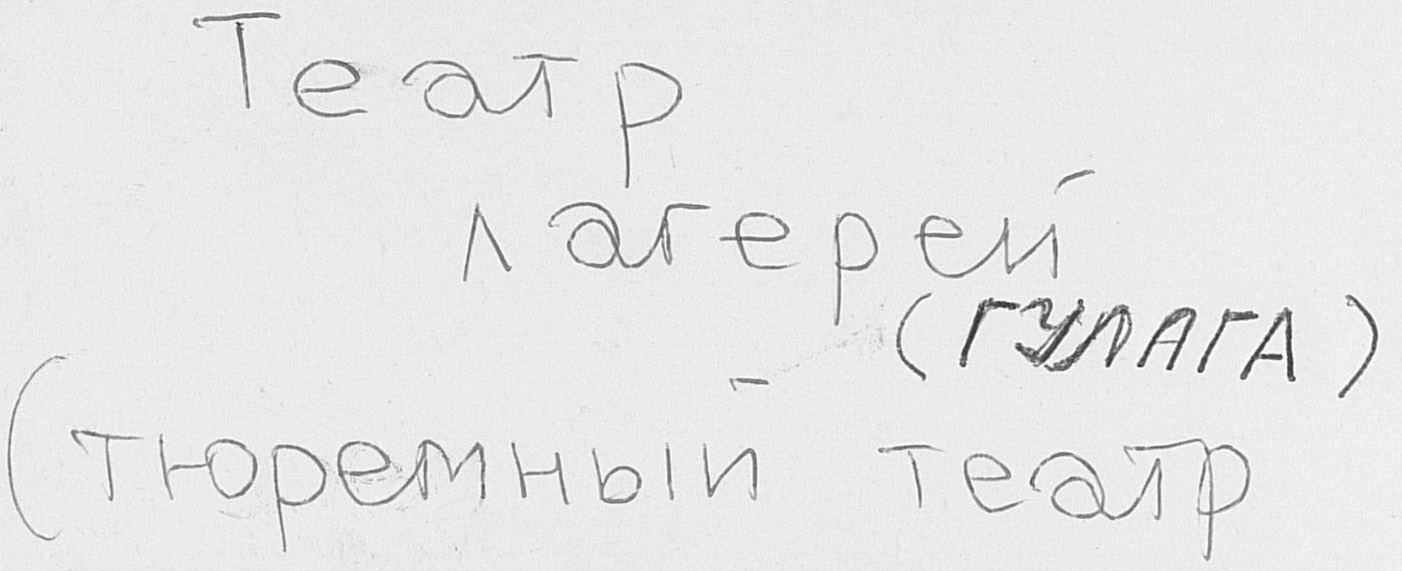 Театр
лагерей
(ГУЛАГА)
(тюремный театр